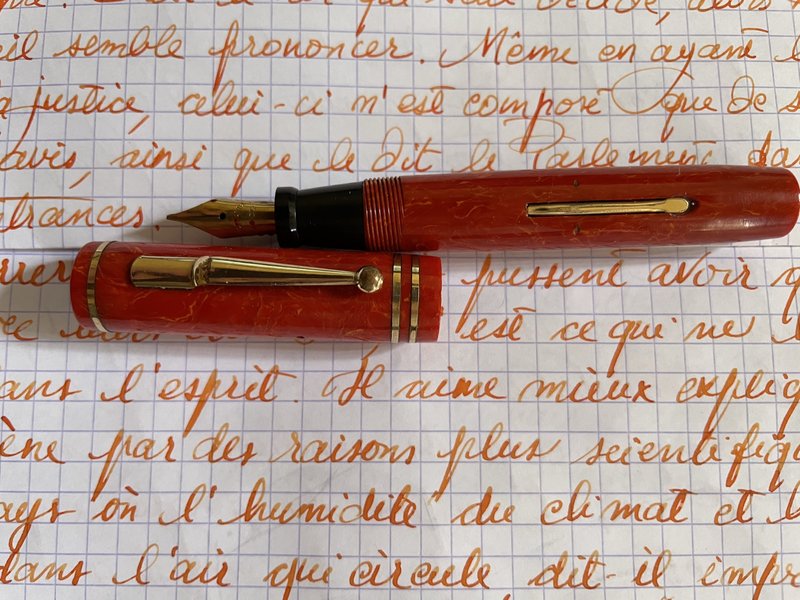 il semble prononcer. Même en ayant
justice, celui-ci n'est composé que de
avis, ainsi que le dit le Parlement
trances.
pussent avoir
est ce qui ne
dans l'esprit. Il aime mieux expliq
ène par des raisons plus scientifiq
ays où l'humidité du climat et
dans l'air qui circule, dit-il impr